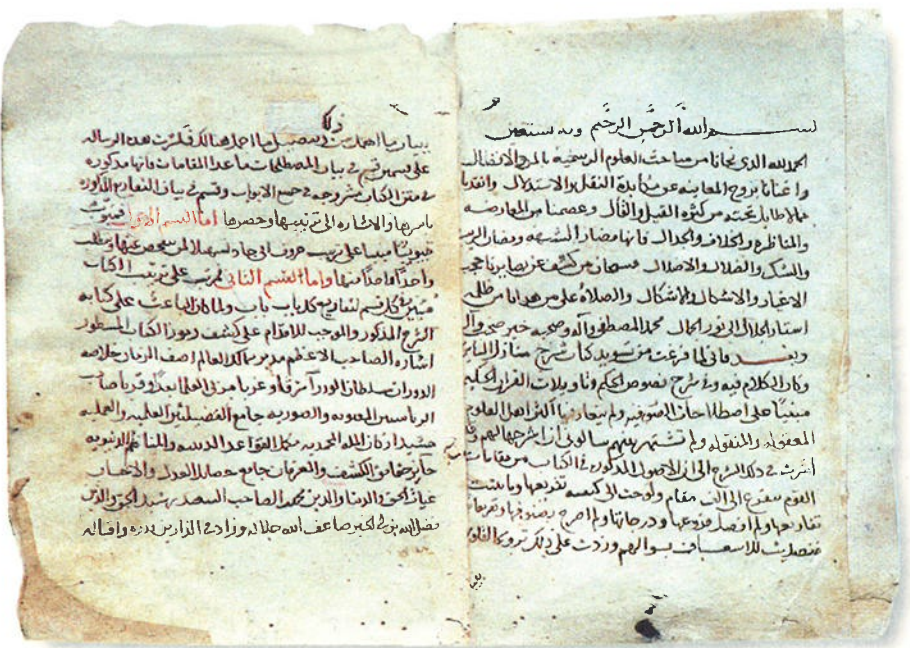 بسم الله الرحمن الرحيم وبه نستعين
الحمد لله الذى نجانا من مباحث العلوم الرسمية بالمن والافضال
واغنانا بروح المعاينه عن مكابدة النقل والاستدلال وانقذنا
مما لا طايل تحته من كثرة القيل والقال وعصمنا من المعارضه
والمناظره والخلاف والجدال فانها مضار الشبهه ومضان الريب
والشك والضلال والاضلال فسبحان من كشف عن بصايرنا حجب
الاغيار والاشكال والاشكال والصلاة على من هدانا من ظلمة
استار الجلال الى نور الجمال محمد المصطفى وآله وصحبه خير صحب وآل
وبعد فانى لما فرغت من تسويد كتاب شرح منازل السايرين
وكان الكلام فيه وفى شرح فصوص الحكم وتاويلات القرآن الحكيم
مبنيا على اصطلاحات الصوفيه ولم يتعارفها اكثر اهل العلوم
المعقوله والمنقوله ولم تشتهر بينهم سالونى ان اشرحها لهم وقد
اشرت فى ذلك الشرح الى ان الاصول المذكوره فى الكتاب من مقامات
القوم يتفرع الى الف مقام ولوحت الى كيفية تفريعها وما بينت
تفاريعها ولم افصل فروعها ودرجاتها ولم اصرح بصنوفها وتعريفاتها
فتصديت للاسعاف بسوالهم وزدت على ذلك
ذلك
بيان ما اهملت تفصيل ما اجملت هنالك فكسرت هذه الرساله
على قسمين قسم فى بيان المصطلحات ماعدا المقامات فانها مذكوره
فى متن الكتاب مشروحه فى جميع الابواب وقسم فى بيان التفاريع المذكوره
باسرها والاشاره الى ترتيبها وحصرها اما القسم الاول فمبوب
تبويبا مبنيا على ترتيب حروف ابى جاد تسهيلا لمن يتفحص عنها ويطلب
واحدا فواحدا منها واما القسم الثانى فمرتب على ترتيب الكتاب
مبين فى كل قسم تفاريع كل باب باب ولما كان الباعث على كتابه
الشرح المذكور والموجب للاقدام على كشف رموز الكتاب المسطور
اشاره الصاحب الاعظم مدبر ممالك العالم آصف الزمان خلاصه
الدوران سلطان الوزرآء شرقا وغربا مربى العلما بعدا وقربا صاحب
الرياستين المعنويه والصوريه جامع الفضيلتين العلميه والعمليه
مشيد اركان المله المحمديه القواعد الدينيه والمناظم الدنيويه
حايز حقايق الكشف والعرفان جامع خصايل العدل والاحسان
غياث الحق والدنيا والدين محمد الصاحب السعيد رشيد الحق والدين
فضل الله بن ابى الخير ضاعف الله جلاله وزاد فى الدارين قدره واقباله